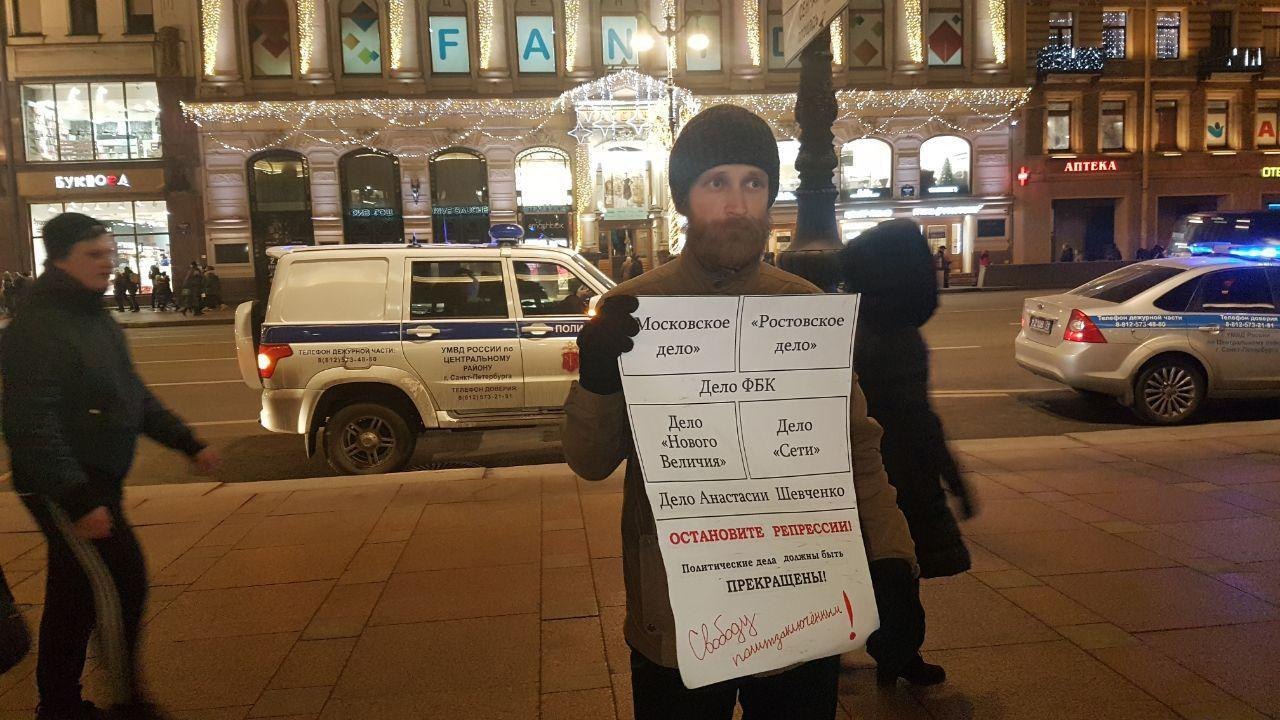 FAN
БУКВОЕД
АПТЕКА
ПОЛИ
ТЕЛЕФОН ДЕЖУРНОЙ ЧАСТИ:
8(812)573-48-80
УМВД РОССИИ по
ЦЕНТРАЛЬНОМУ
РАЙОНУ
г. Санкт-Петербурга
ТЕЛЕФОН ДОВЕРИЯ
8(812)573-21-81
Телефон дежурной части:
8-812-573-48-80
Телефон доверия
8-812-573-21-81
Московское
дело»
«Ростовское
дело»
Дело ФБК
Дело
«Нового
Величия»
Дело
«Сети»
Дело Анастасии Шевченко
ОСТАНОВИТЕ РЕПРЕССИИ!
Политические дела должны быть
ПРЕКРАЩЕНЫ!
Свободу
политзаключённым!